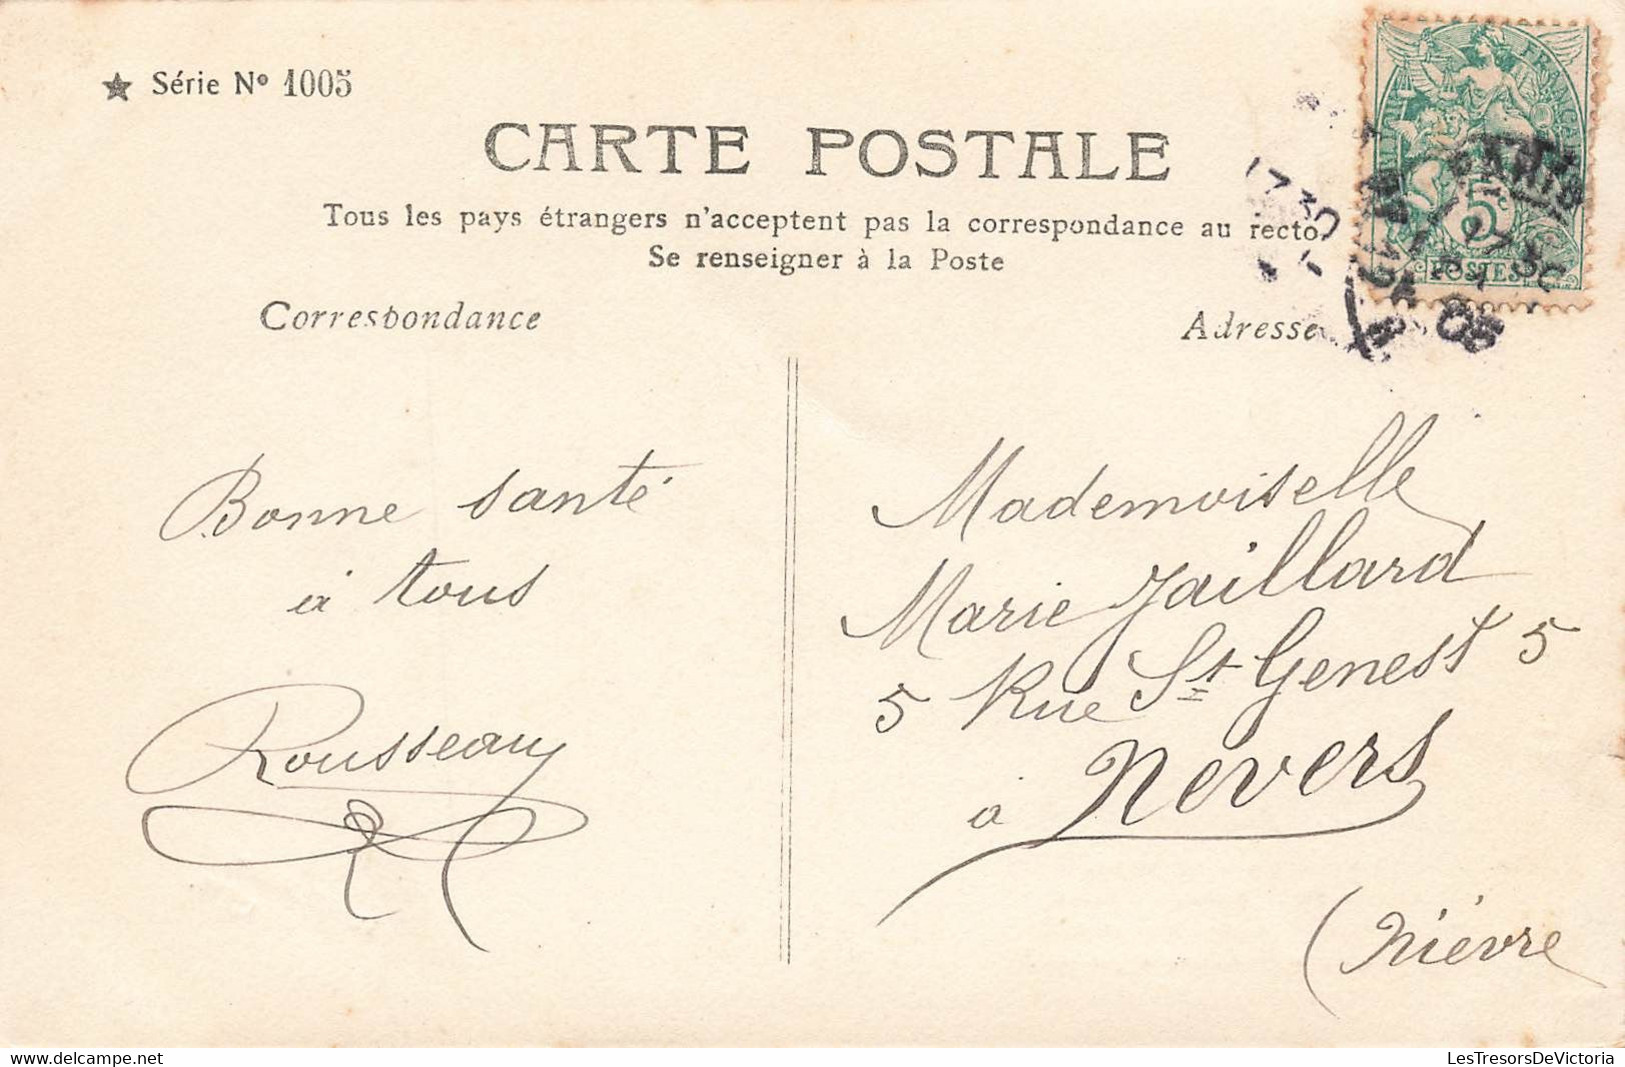 ★ Série Nº 1005
CARTE POSTALE
Tous les pays étrangers n'acceptent pas la correspondance au recto
Se renseigner à la Poste
Correspondance
Adresse
FRANÇAISE
5c
POSTES
PARIS
05
Bonne santé
à tous
Rousseau
Mademoiselle
Marie Jaillard
5 Rue St Genest 5
à Nevers
(Nièvre
www.delcampe.net
LesTresorsDeVictoria